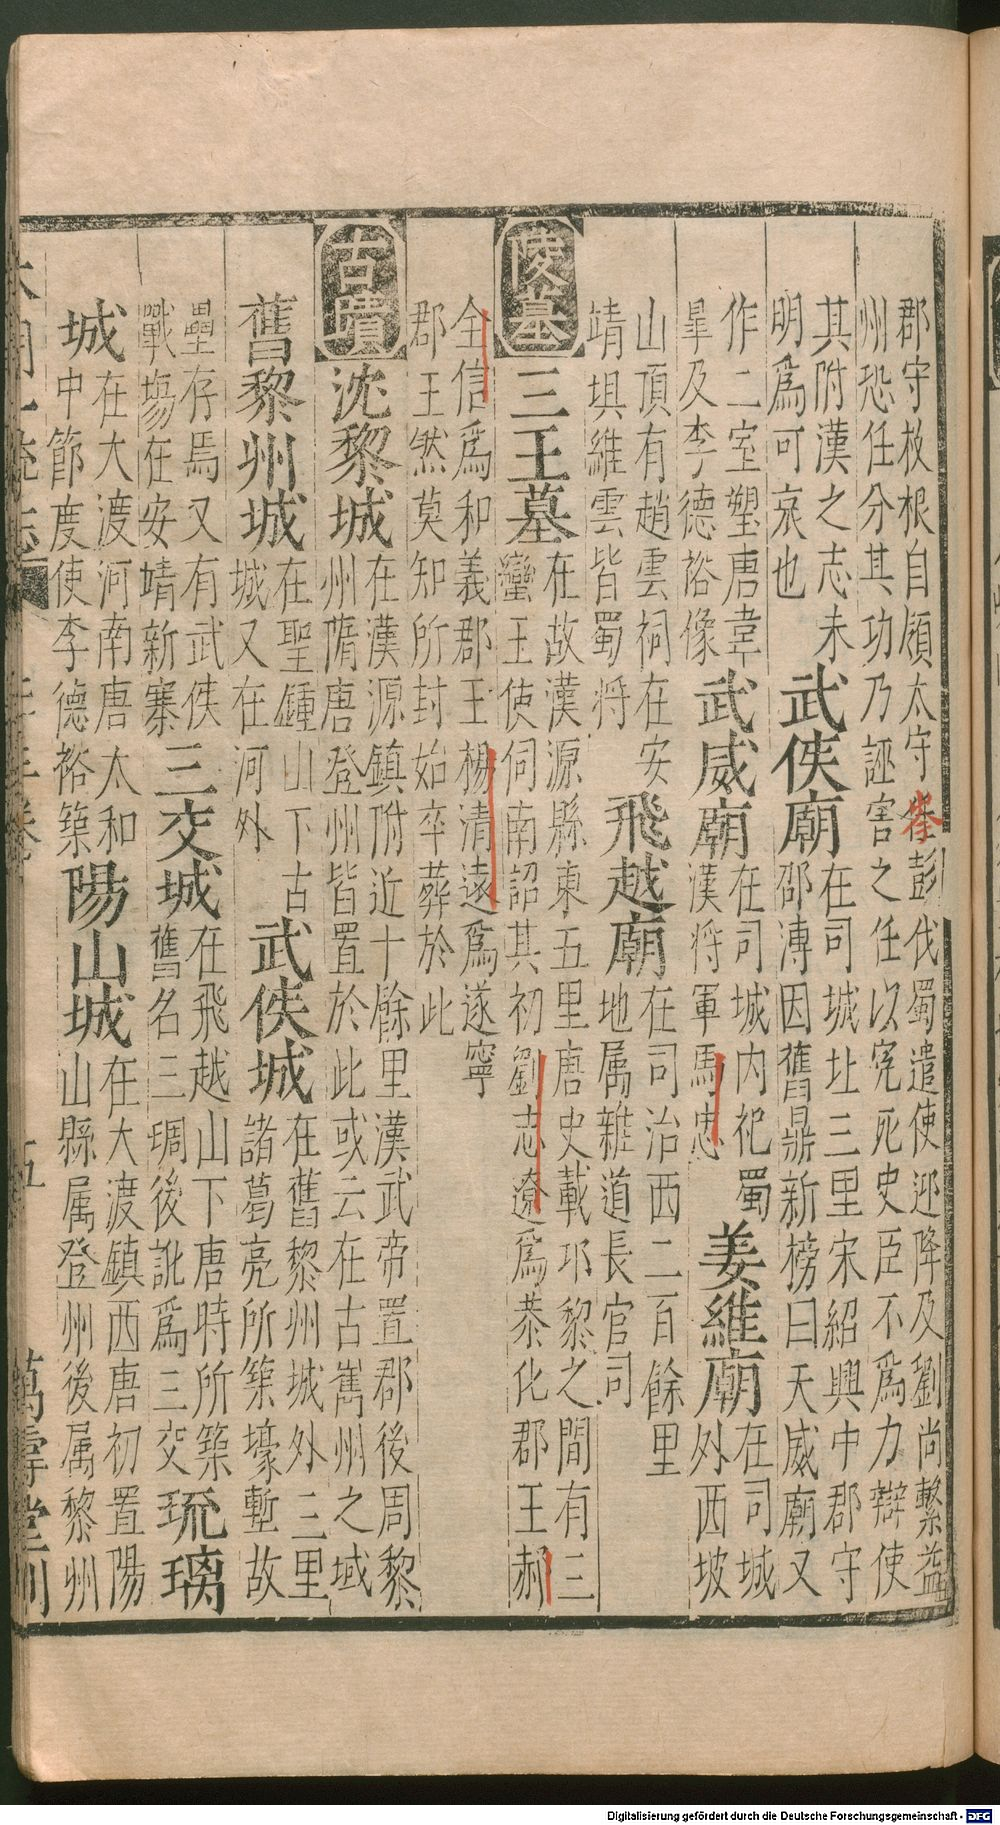 郡守枚根自領太守岑彭伐蜀遣使迎降及劉尚繫益
州恐任分其功乃誣害之任以冤死史臣不爲力辯使
其附漢之志未
明爲可哀也
武侯廟
在司城北三里宋紹興中郡守
邵溥因舊鼎新榜曰天威廟又
作二室塑唐韋
皐及李德裕像
武威廟
在司城内祀蜀
漢將軍馬忠
姜維廟
在司城
外西坡
山頂有趙雲祠在安
靖埧維雲皆蜀將
飛越廟
在司治西二百餘里
地属雜道長官司
陵墓
三王墓
在故漢源縣東五里唐史載邛黎之間有三
蠻王使伺南詔其初劉志遼爲恭化郡王郝
全信爲和義郡王楊清遠爲遂寧
郡王然莫知所封始卒葬於此
古蹟
沈黎城
在漢源鎮附近十餘里漢武帝置郡後周黎
州隋唐登州皆置於此或云在古嶲州之域
舊黎州城
在聖鍾山下古
城又在河外
武侯城
在舊黎州城外三里
諸葛亮所築壕塹故
壘存焉又有武侯
戰塲在安靖新寨
三交城
在飛越山下唐時所築
舊名三琱後訛爲三交
琉璃
城
在大渡河南唐太和
中節度使李德裕築
陽山城
在大渡鎮西唐初置陽
山縣属登州後属黎州
大明一統志
五
萬壽堂刊
Digitalisierung gefördert durch die Deutsche Forschungsgemeinschaft - DFG